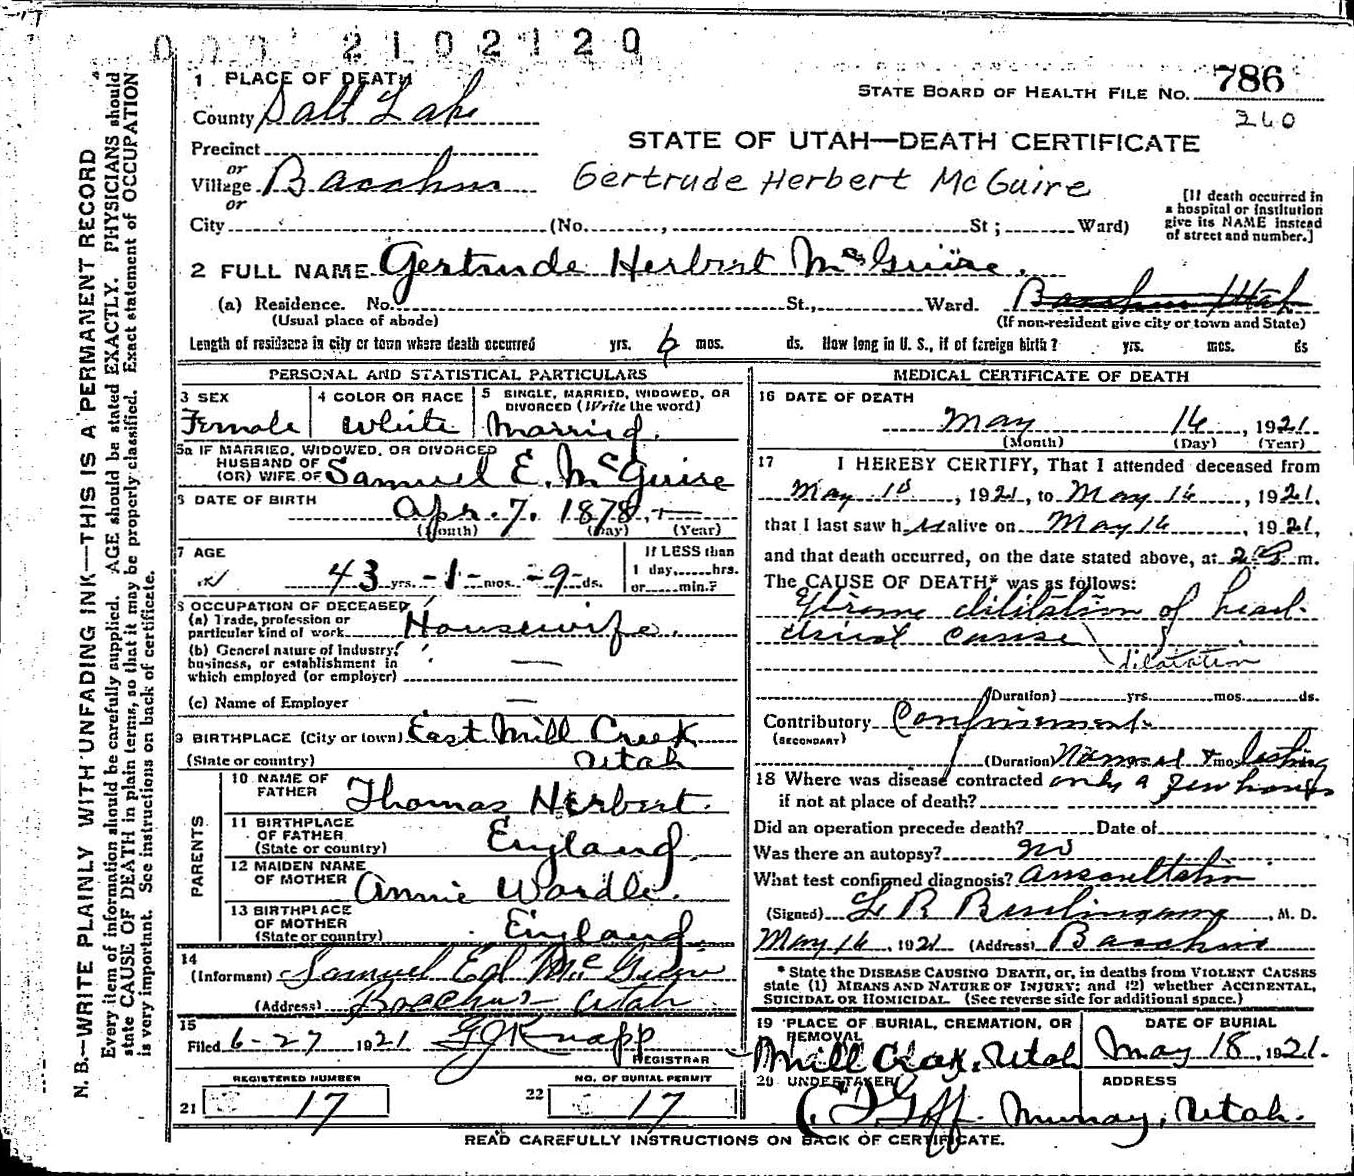 000 2102120
1 PLACE OF DEATH
STATE BOARD OF HEALTH FILE No. 786
County Salt Lake
260
Precinct
STATE OF UTAH—DEATH CERTIFICATE
or
Village Bacchus
Gertrude Herbert McGuire
or
[If death occurred in
a hospital or institution
give its NAME instead
of street and number.]
City (No. , St; Ward)
2 FULL NAME Gertrude Herbert McGuire.
(a) Residence. No. St., Ward. Bacchus Utah
(Usual place of abode) (If non-resident give city or town and State)
Length of residence in city or town where death occurred yrs. 6 mos. ds. How long in U. S., if of foreign birth? yrs. mos. ds
PERSONAL AND STATISTICAL PARTICULARS
3 SEX
Female
4 COLOR OR RACE
White
5 SINGLE, MARRIED, WIDOWED, OR
DIVORCED (Write the word)
Married.
5a IF MARRIED, WIDOWED, OR DIVORCED
HUSBAND OF
(OR) WIFE OF Samuel E. McGuire
6 DATE OF BIRTH
Apr. 7. 1878
(Month) (Day) (Year)
7 AGE
43 yrs. -1- mos. -9- ds.
If LESS than
1 day, hrs.
or min.?
8 OCCUPATION OF DECEASED
(a) Trade, profession or
particular kind of work Housewife.
(b) General nature of Industry,
business, or establishment in
which employed (or employer)
(c) Name of Employer
9 BIRTHPLACE (City or town) East Mill Creek
(State or country) Utah
PARENTS
10 NAME OF
FATHER Thomas Herbert.
11 BIRTHPLACE
OF FATHER
(State or country) England
12 MAIDEN NAME
OF MOTHER Annie Wardle.
13 BIRTHPLACE
OF MOTHER
(State or country) England
14
(Informant) Samuel Ed McGuire
(Address) Bacchus - Utah
15
Filed 6-27 1921 G J Knapp
REGISTRAR
REGISTERED NUMBER
21 17
NO. OF BURIAL PERMIT
22 17
MEDICAL CERTIFICATE OF DEATH
16 DATE OF DEATH
May 16, 1921
(Month) (Day) (Year)
17 I HEREBY CERTIFY, That I attended deceased from
May 15, 1921, to May 16, 1921.
that I last saw her alive on May 16, 1921,
and that death occurred, on the date stated above, at 2 m.
The CAUSE OF DEATH* was as follows:
Xtreme dilitation of heart
usual cause
dilatation
(Duration) yrs. mos. ds.
Contributory Confinement.
(SECONDARY)
(Duration) Normal mos lasting
18 Where was disease contracted only a few hours
if not at place of death?
Did an operation precede death? Date of
Was there an autopsy? no
What test confirmed diagnosis? Auscultation
(Signed) L R Burlingame, M. D.
May 16, 1921 (Address) Bacchus
* State the DISEASE CAUSING DEATH, or, in deaths from VIOLENT CAUSES
state (1) MEANS AND NATURE OF INJURY; and (2) whether ACCIDENTAL,
SUICIDAL OR HOMICIDAL. (See reverse side for additional space.)
19 PLACE OF BURIAL, CREMATION, OR
REMOVAL
Mill Creek, Utah
DATE OF BURIAL
May 18, 1921.
20 UNDERTAKER
Goff.
ADDRESS
Murray, Utah.
READ CAREFULLY INSTRUCTIONS ON BACK OF CERTIFICATE.
N. B.—WRITE PLAINLY WITH UNFADING INK—THIS IS A PERMANENT RECORD
Every item of information should be carefully supplied. AGE should be stated EXACTLY. PHYSICIANS should
state CAUSE OF DEATH in plain terms, so that it may be properly classified. Exact statement of OCCUPATION
is very important. See instructions on back of certificate.